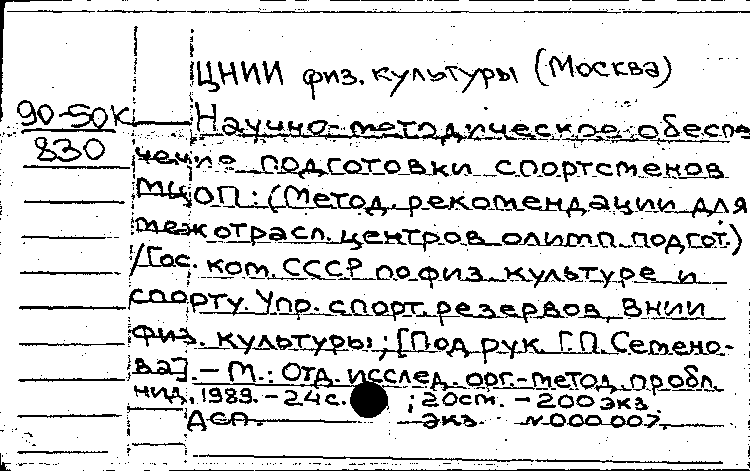 ЦНИИ физ. культуры (Москва)
90-50К
830
Научно-методическое обеспе
чение подготовки спортсменов
МЦОП: (Метод. рекомендации для
межотрасл. центров олимп. подгот.)
/Гос. ком. СССР по физ. культуре и
спорту. Упр. спорт. резервов, ВНИИ
физ. культуры; [Под рук. Г.П. Семено-
ва]. – М.: Отд. исслед. орг.-метод. пробл.
НИД, 1989. – 24 с. ; 20 см. – 200 экз.
ДСП. экз. N 000 007.